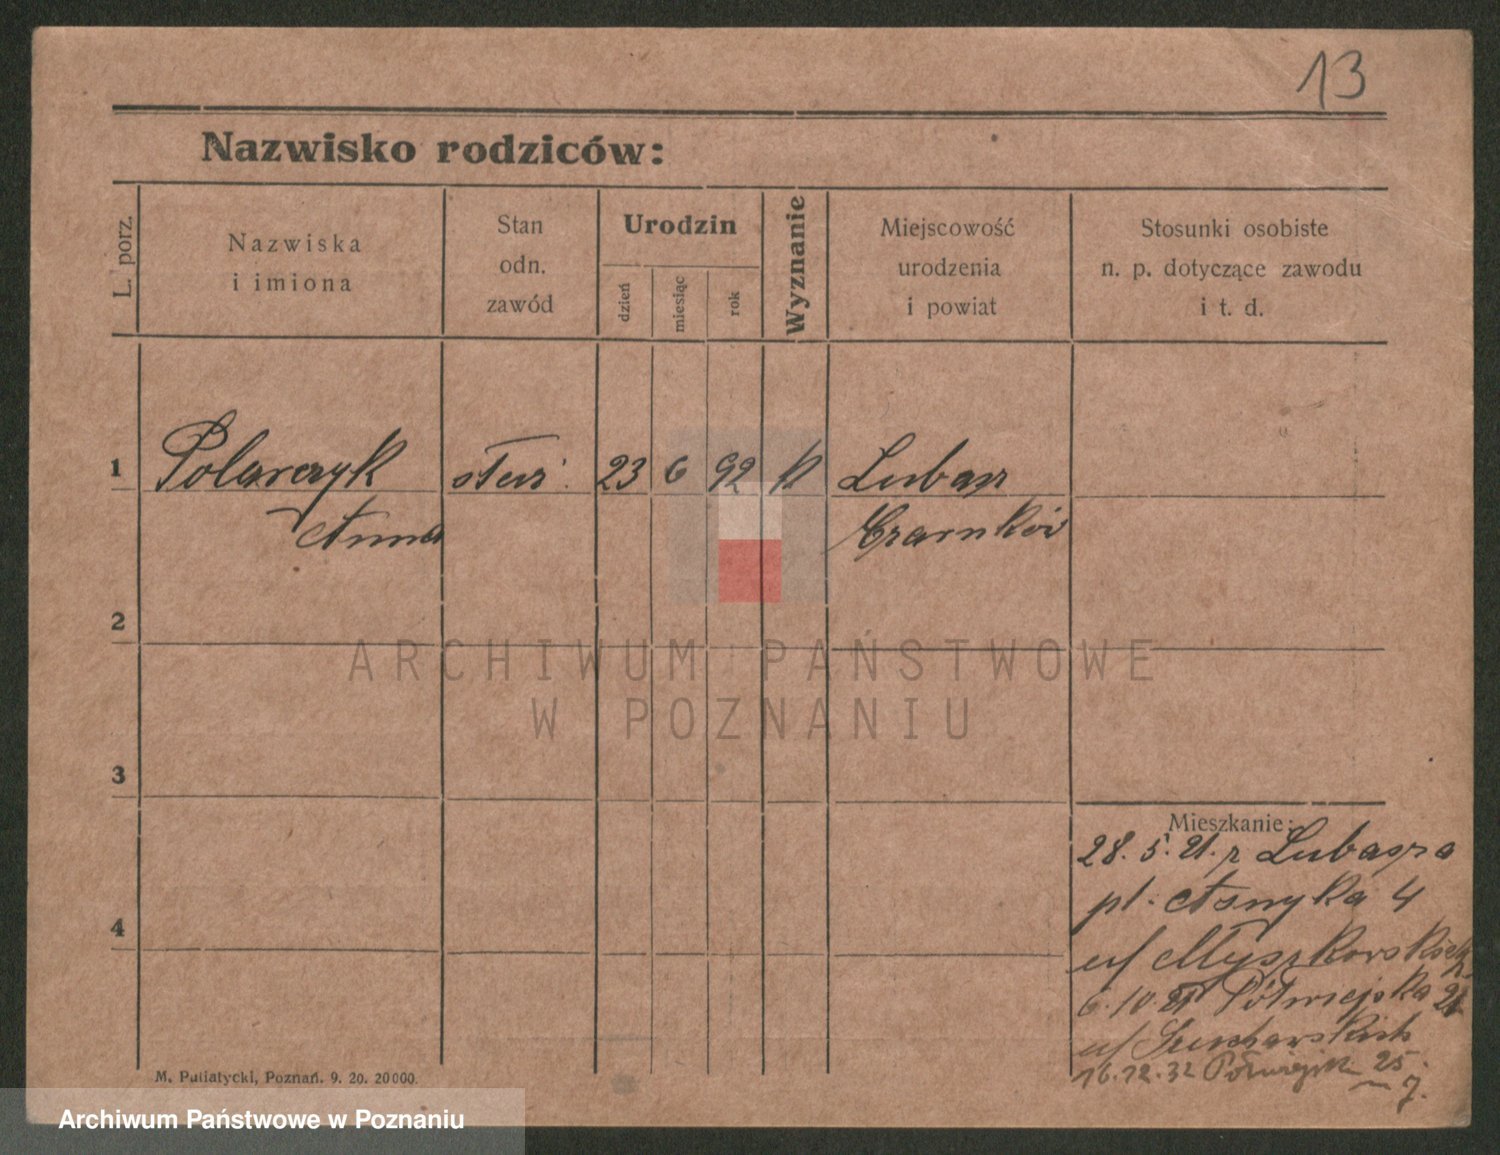 13
Nazwisko rodziców:
L. porz.
Nazwiska
i imiona
Stan
odn.
zawód
Urodzin
dzień
miesiąc
rok
Wyznanie
Miejscowość
urodzenia
i powiat
Stosunki osobiste
n. p. dotyczące zawodu
i t. d.
1 Polarczyk służ. 23 6 92 k Lubasz
Anna Czarnków
2
ARCHIWUM PAŃSTWOWE
W POZNANIU
3
Mieszkanie:
28. 5. 21. z Lubasza
pl. Asnyka 4
4
u/ Myszkowskich
6. 10. 21 Półwiejska 21
u/
16.12.32 Półwiejsk 25
m 7.
M. Putiatycki, Poznań. 9. 20. 20000.
Archiwum Państwowe w Poznaniu